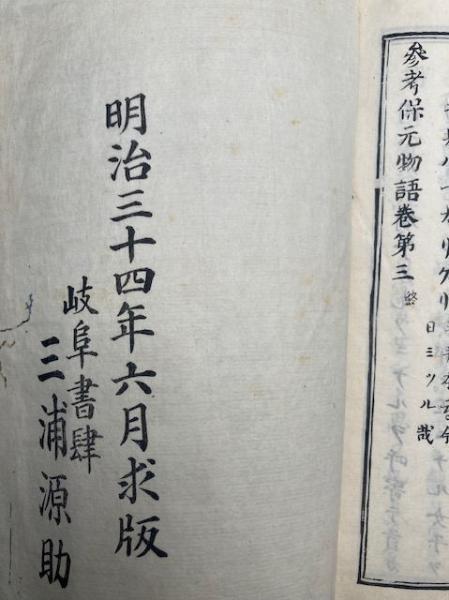 日ミツル哉
参考保元物語巻第三 終
明治三十四年六月求版
岐阜書肆
三浦源助